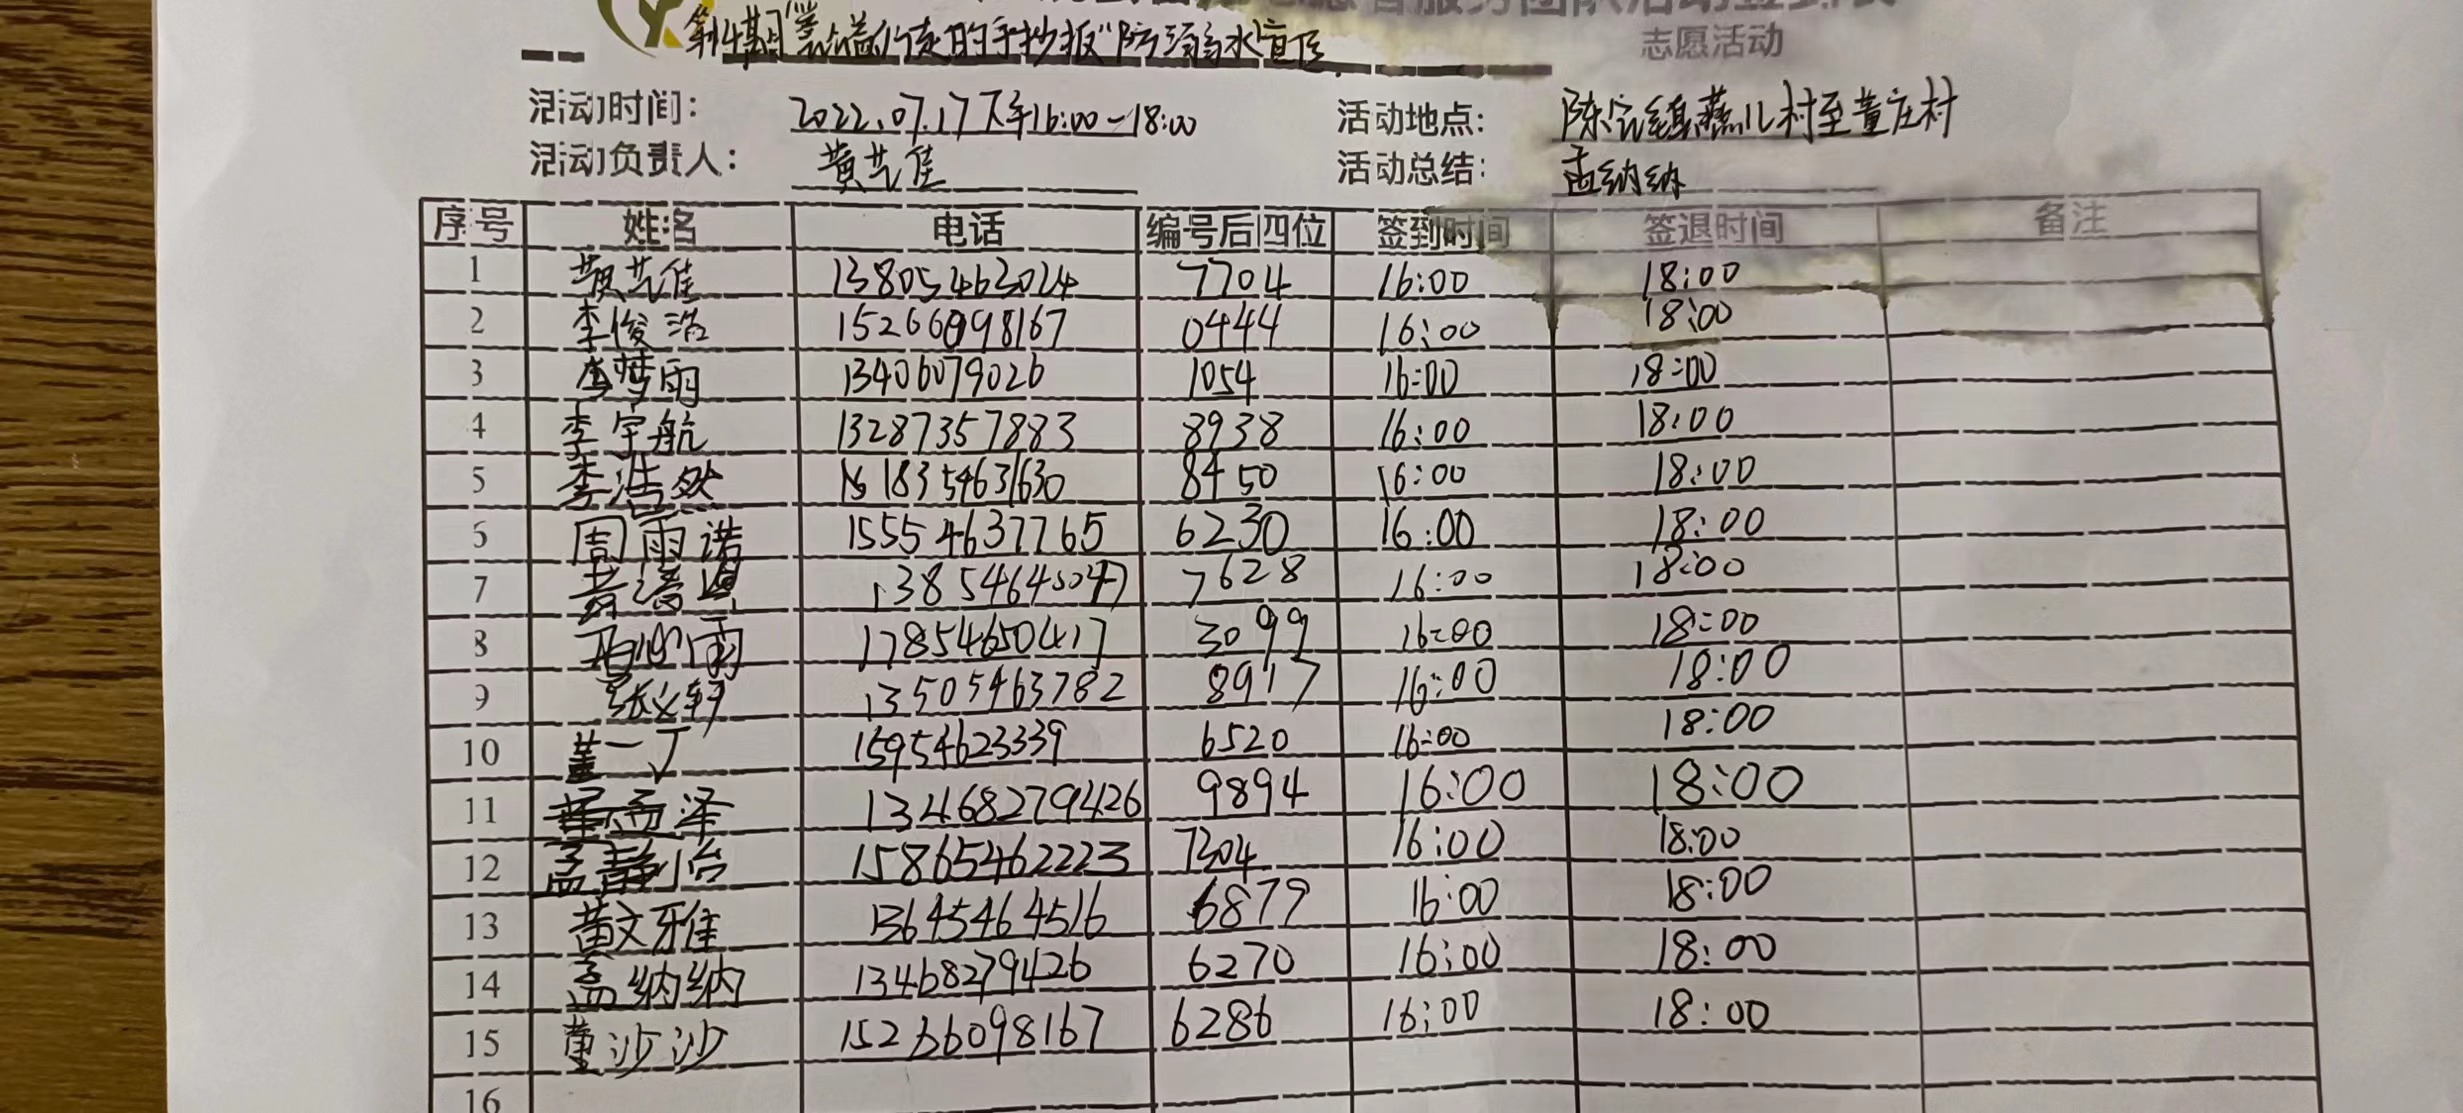 志愿服务团队活动签到表
"防溺水"宣传
志愿活动
活动时间: 2022.07.17下午16:00-18:00 活动地点: 陈官镇燕儿村至董庄村
活动负责人: 黄艺佳 活动总结: 孟纳纳
序号 姓名 电话 编号后四位 签到时间 签退时间 备注
1 黄艺佳 13805463024 7704 16:00 18:00
2 李俊浩 15266098167 0444 16:00 18:00
3 李梦雨 13406079026 1054 16:00 18:00
4 李宇航 13287357883 8938 16:00 18:00
5 李浩然 18354631630 8450 16:00 18:00
6 周雨诺 15554637765 6230 16:00 18:00
7 7628 16:00 18:00
8 17854650417 3099 16:00 18:00
9 张义轩 13505463782 8917 16:00 18:00
10 盖一丁 15954623339 6520 16:00 18:00
11 泽 134682279426 9894 16:00 18:00
12 孟 15865462223 7304 16:00 18:00
13 黄文雅 13645464516 6879 16:00 18:00
14 孟纳纳 13468279426 6270 16:00 18:00
15 董沙沙 15266098167 6286 16:00 18:00
16